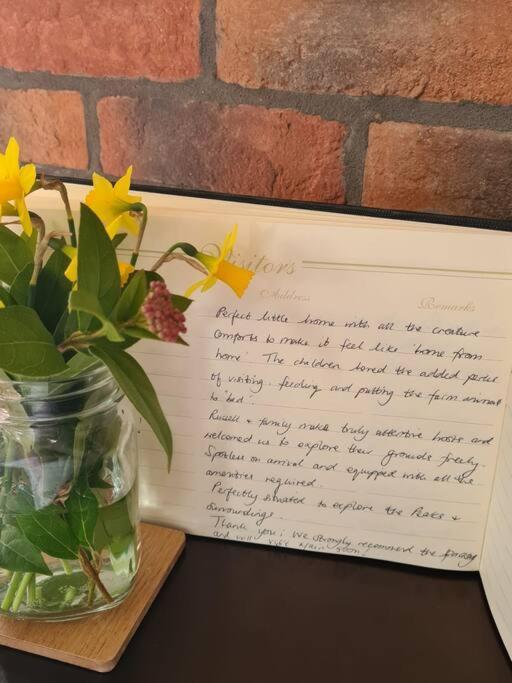 Visitors
Address Remarks
Perfect little home with all the creature
comforts to make it feel like 'home from
home'. The children loved the added perks
of visiting, feeding and putting the farm animals
to 'bed'.
Russell & family make truly attentive hosts and
welcomed us to explore their grounds freely.
Spotless on arrival and equipped with all the
amenities required.
Perfectly situated to explore the Peaks &
surroundings.
Thank you! We strongly recommend the
and will visit again soon!